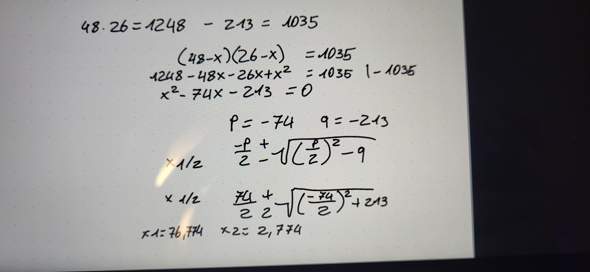 48·26=1248 - 213 = 1035
(48-x)(26-x) = 1035
1248-48x-26x+x² = 1035 |-1035
x²-74x-213 = 0
p=-74 q=-213
x1/2 -p/2 +- √((p/2)²-q
x1/2 74/2 +/2 - √((-74/2)²+213
x1=76,774 x2=2,774